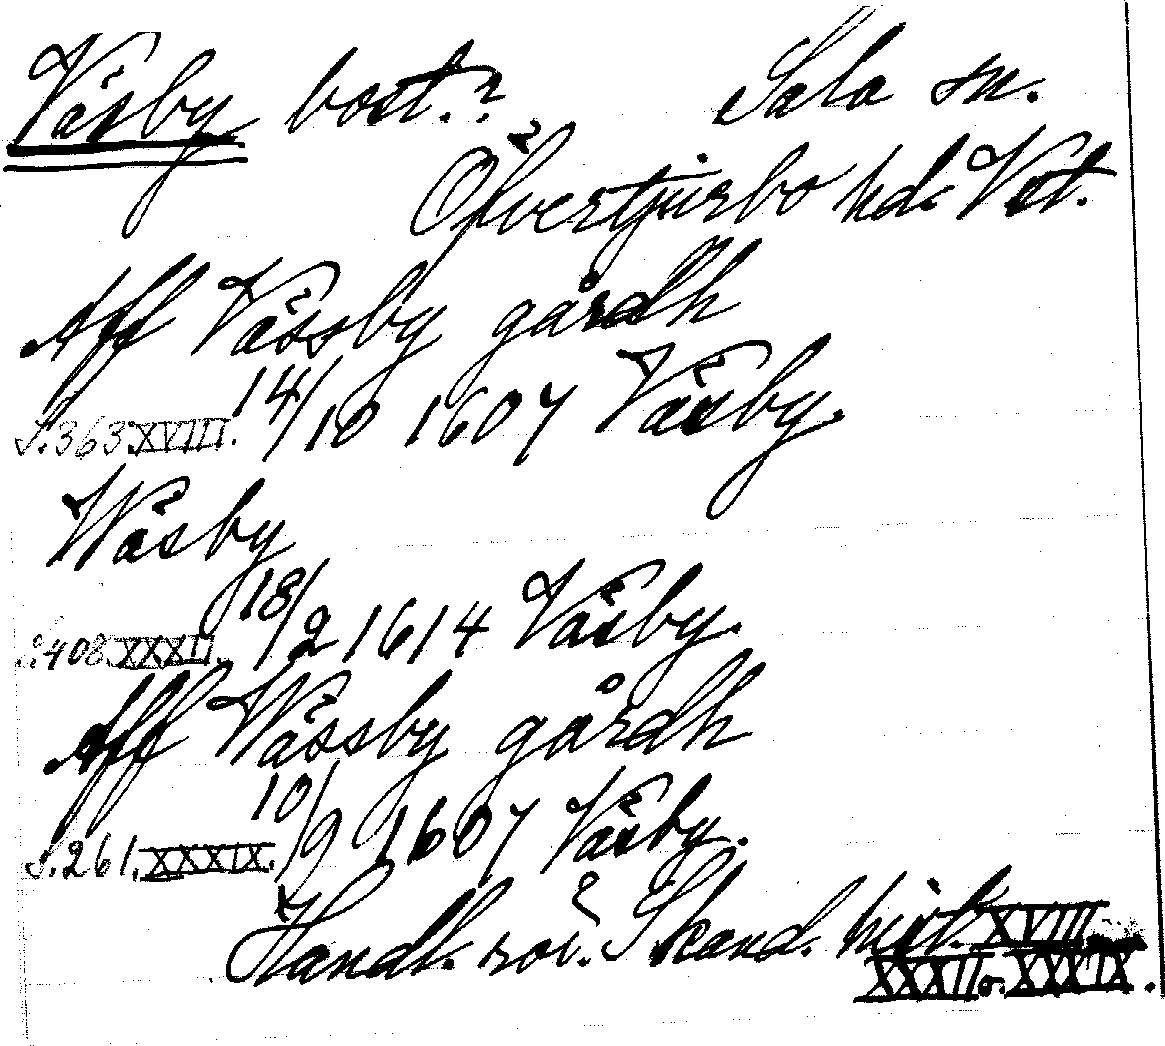 Väsby bost.? Sala sn.
Öfvertjurbo hd. Vst.
Aff Vässby gårdh
S.363.XVIII. 14/10 1607 Väsby.
Wäsby
S.408.XXXII. 18/2 1614 Väsby.
Aff Wässby gårdh
S.261.XXXIX. 10/9 1607 Väsby.
Handl. rör. Skand. hist. XVIII
XXXII o. XXXIX.